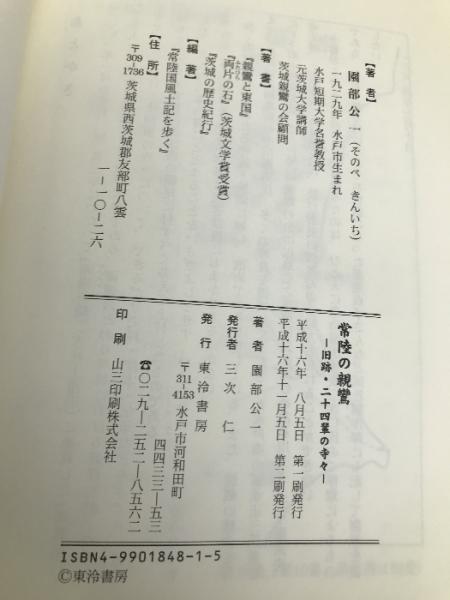 【著者】
園部公一（そのべ きんいち）
一九二九年 水戸市生まれ
水戸短期大学名誉教授
元茨城大学講師
茨城親鸞の会顧問
【著書】
『親鸞と東国』
『両片の石』（茨城文学賞受賞）
『茨城の歴史紀行』
【編著】
『常陸国風土記を歩く』
【住所】
〒309-1736 茨城県西茨城郡友部町八雲
一－一〇－二六
常陸の親鸞
―旧跡・二十四輩の寺々―
平成十六年 八月五日 第一刷発行
平成十六年十一月五日 第二刷発行
著者 園部公一
発行者 三次 仁
発行 東冷書房
〒311-4153 水戸市河和田町
四四三三－五三
☎〇二九－二五二－八五六二
印刷 山三印刷株式会社
ISBN4-9901848-1-5
©東冷書房